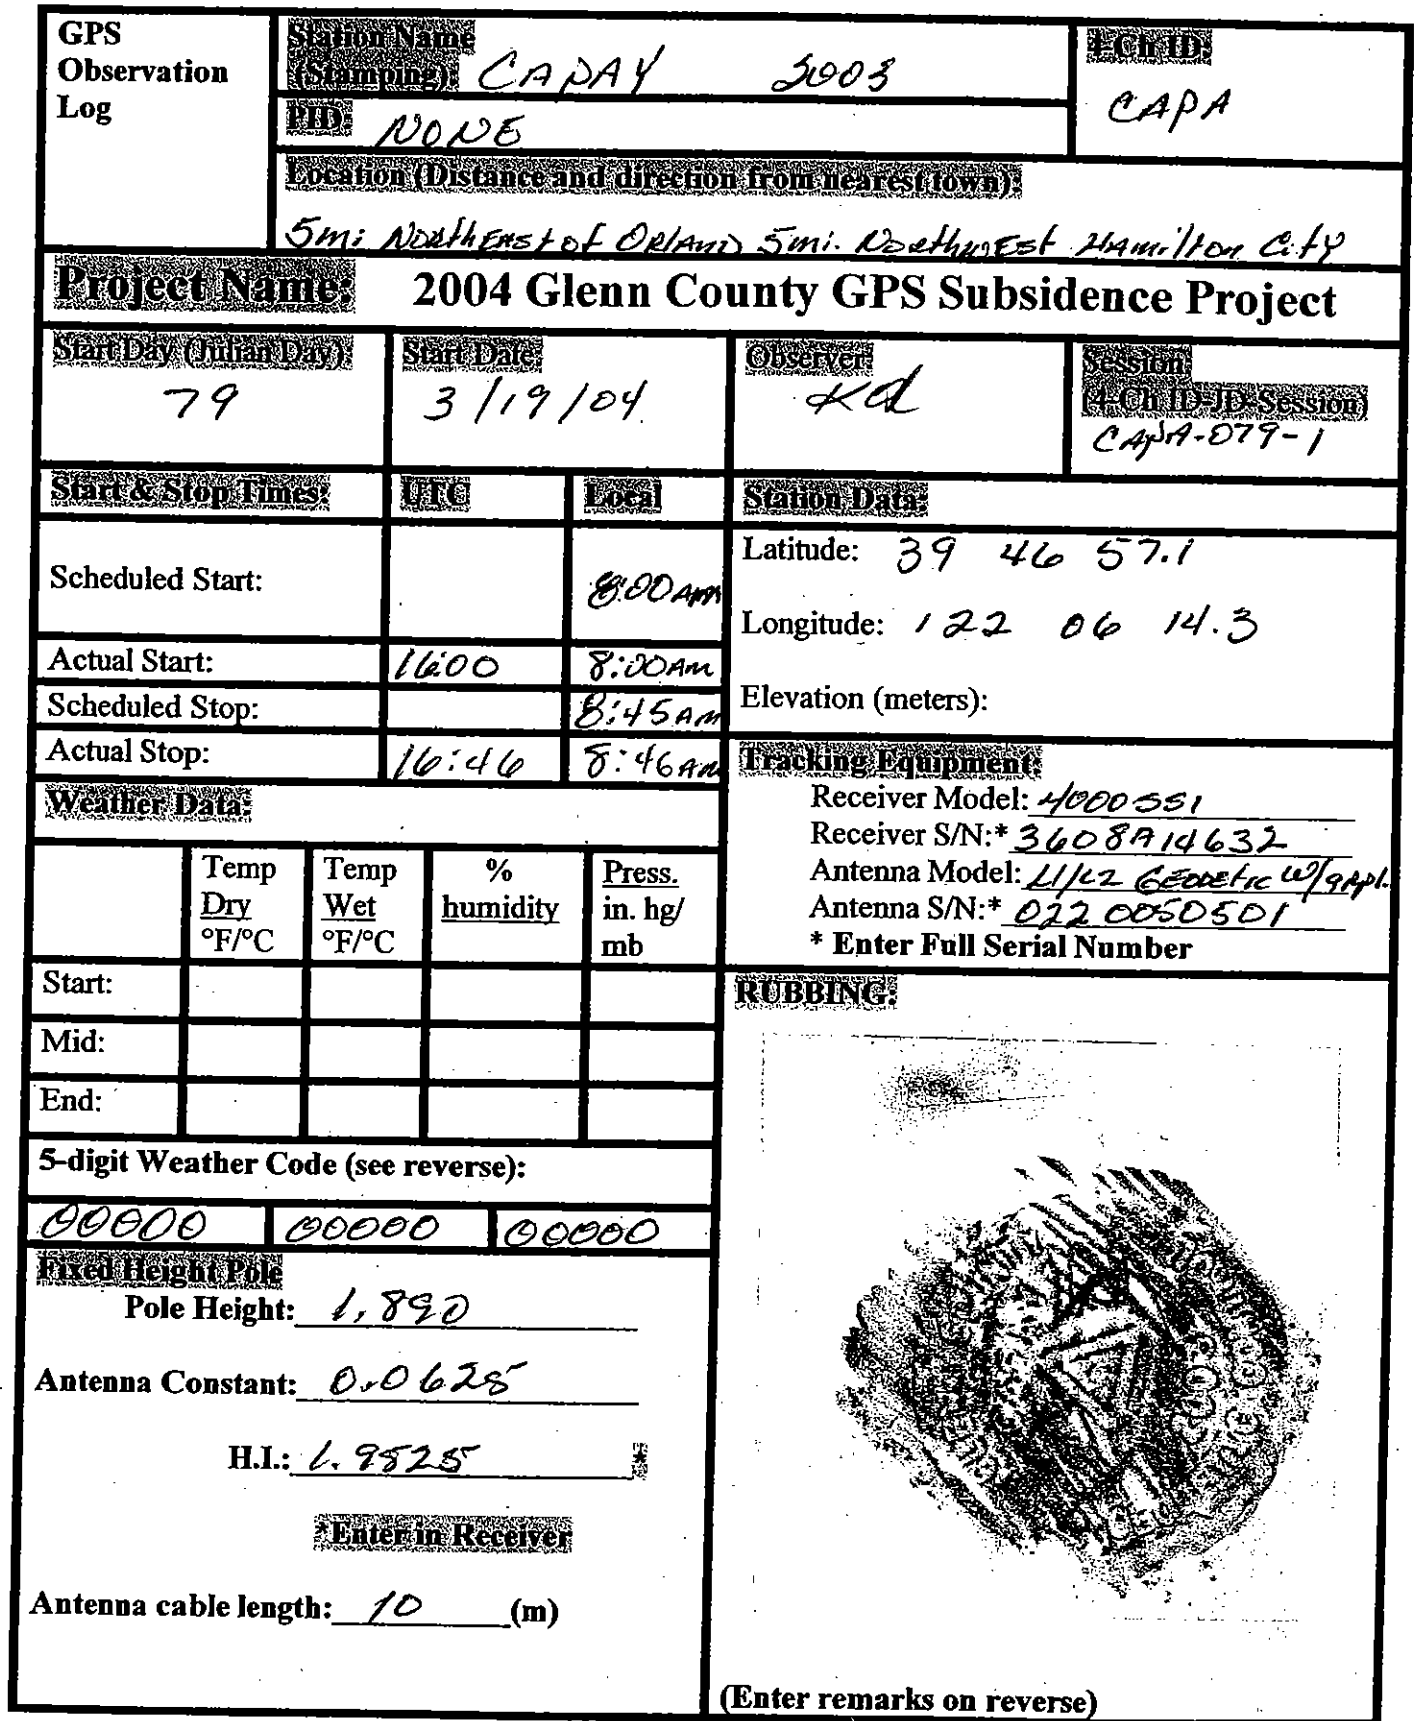 GPS
Observation
Log
Station Name
(Stamping): CAPAY 2003
4-Ch ID:
CAPA
PID: NONE
Location (Distance and direction from nearest town):
5mi NorthEast of Orland 5mi. NorthwEst Hamilton City
Project Name: 2004 Glenn County GPS Subsidence Project
Start Day (Julian Day):
79
Start Date:
3/19/04
Observer:
Kd
Session:
(4-Ch ID-JD-Session)
CAPA-079-1
Start & Stop Times: UTC Local
Scheduled Start: 8:00 Am
Actual Start: 16:00 8:00 Am
Scheduled Stop: 8:45 Am
Actual Stop: 16:46 8:46 Am
Station Data:
Latitude: 39 46 57.1
Longitude: 122 06 14.3
Elevation (meters):
Tracking Equipment:
Receiver Model: 4000SSI
Receiver S/N:* 3608A14632
Antenna Model: L1/L2 GEodetic w/gRpl.
Antenna S/N:* 0220050501
* Enter Full Serial Number
Weather Data:
Temp
Dry
°F/°C
Temp
Wet
°F/°C
%
humidity
Press.
in. hg/
mb
Start:
Mid:
End:
5-digit Weather Code (see reverse):
00000 00000 00000
Fixed Height Pole
Pole Height: 1.890
Antenna Constant: 0.0625
H.I.: 1.9525 *
*Enter in Receiver
Antenna cable length: 10 (m)
RUBBING:
(Enter remarks on reverse)